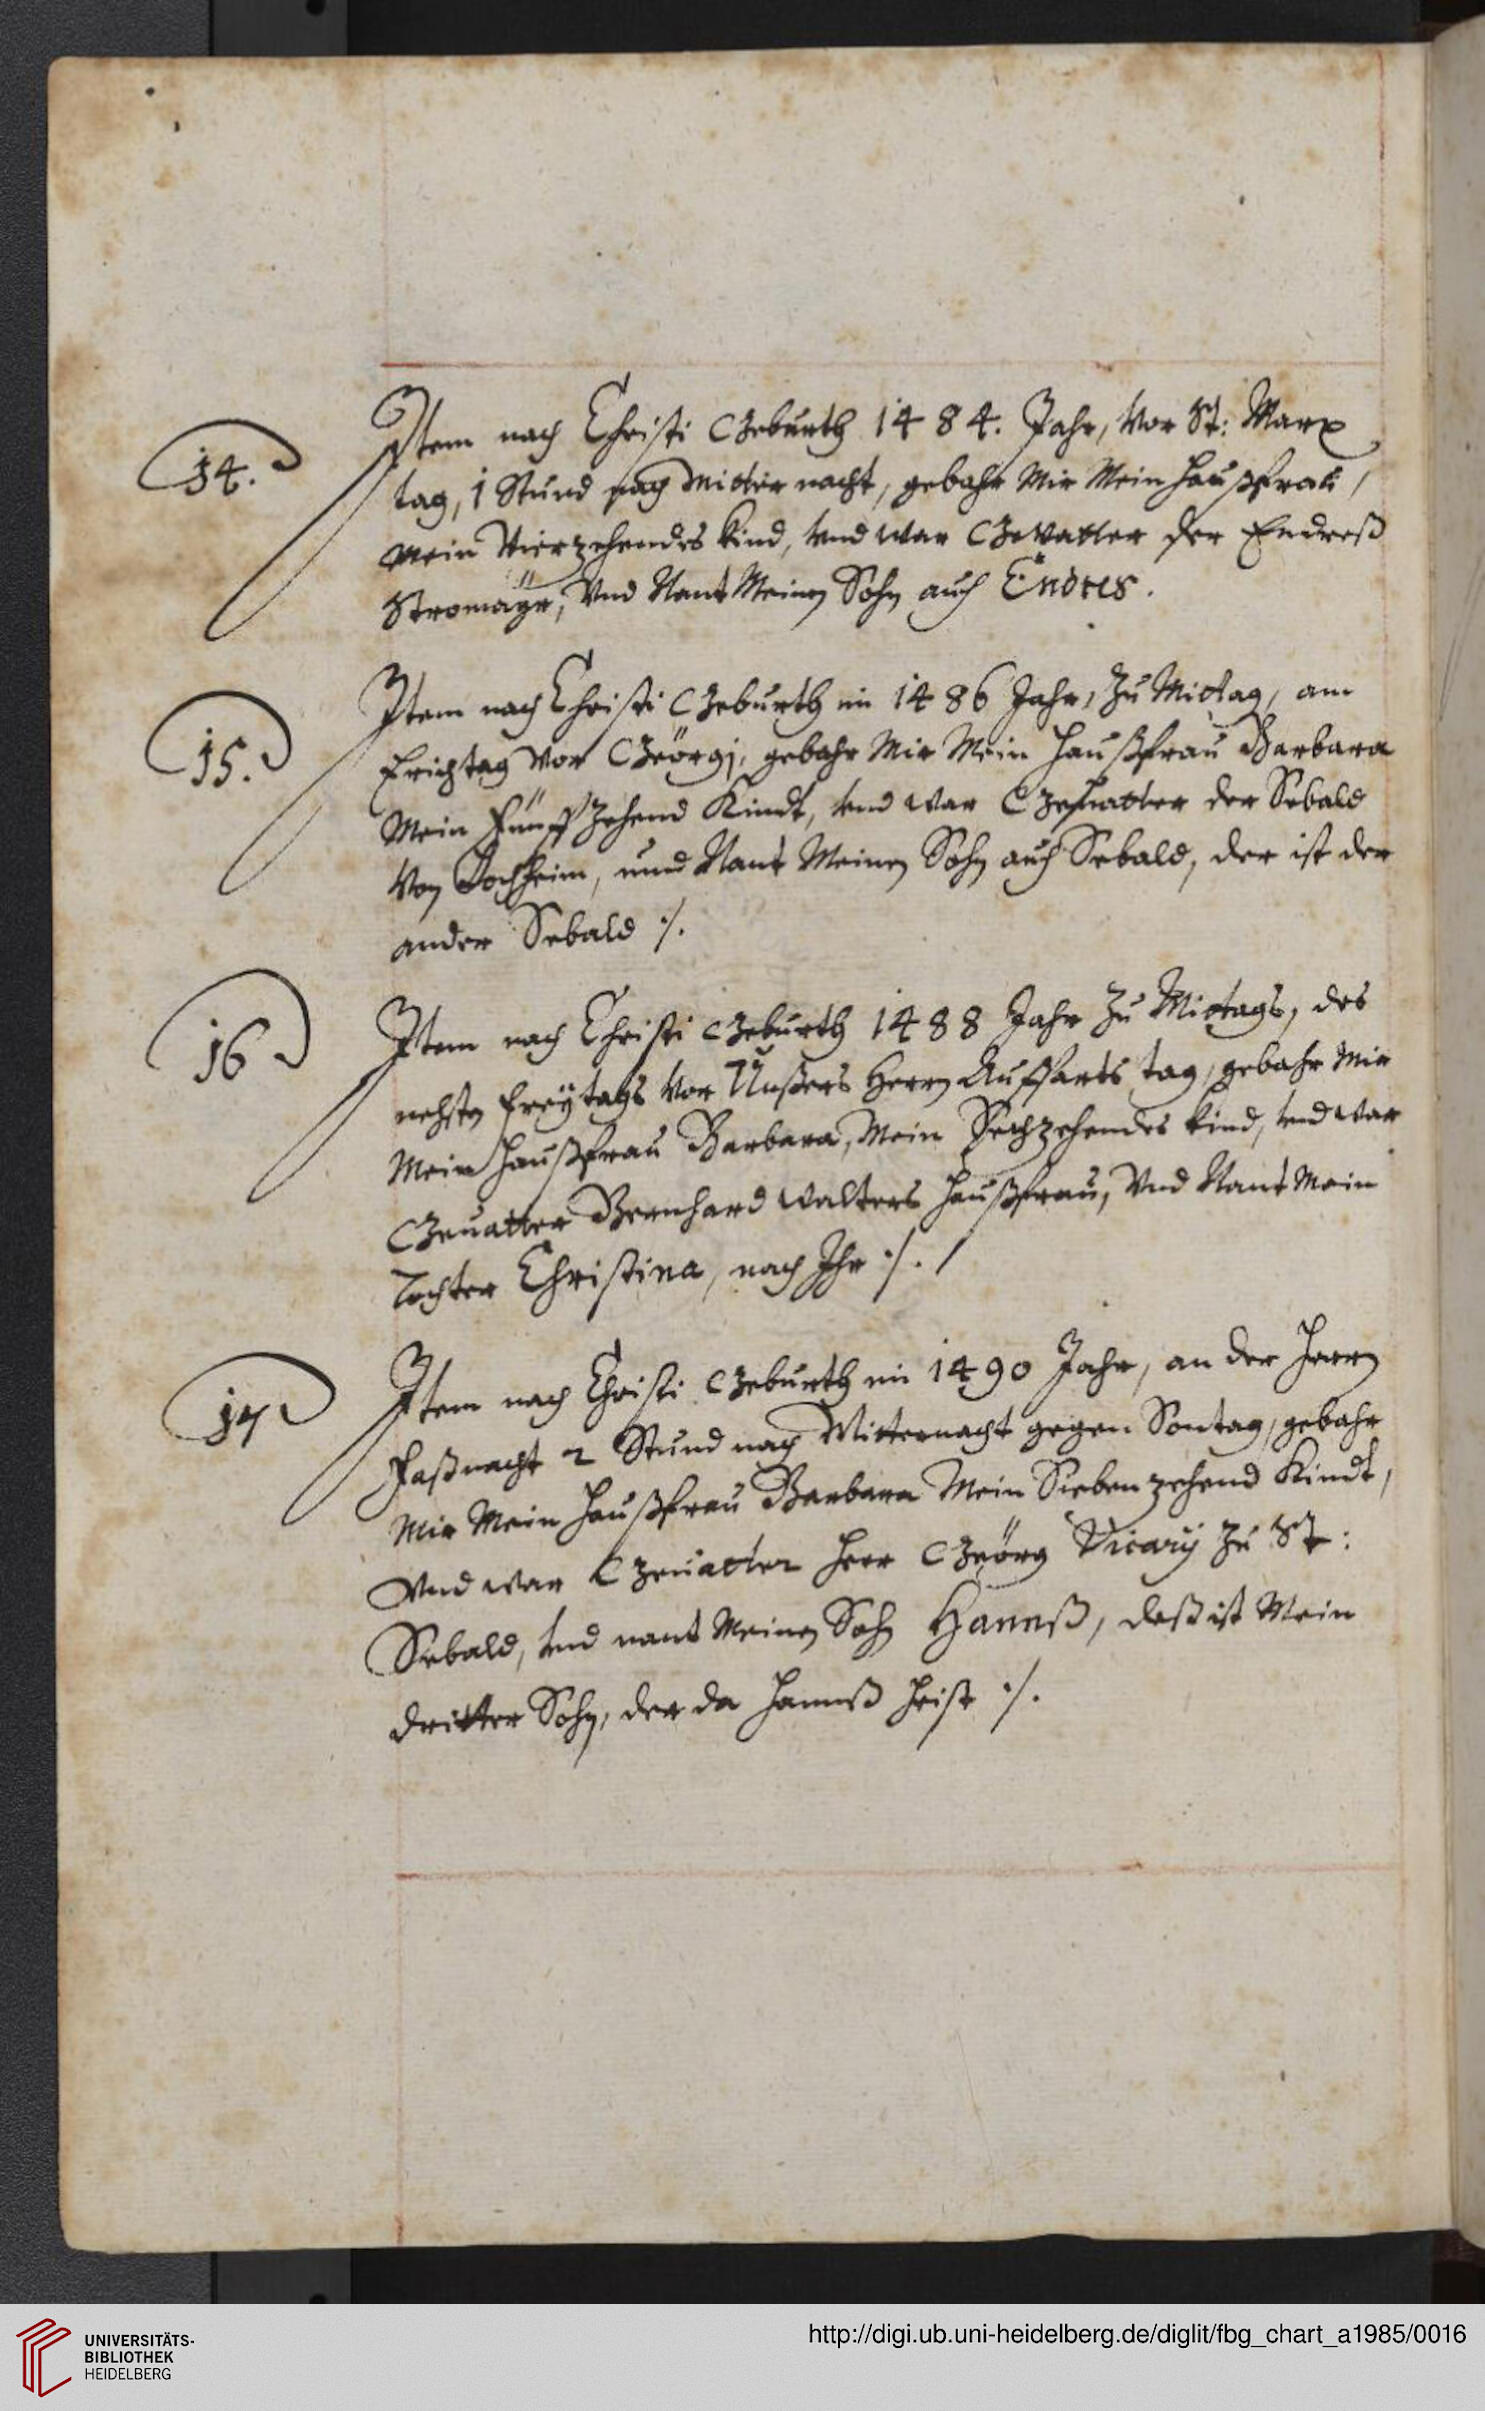 14.
Item nach Christi Geburth 1484. Jahr, Vor St: Marx
tag, 1 Stund nach Mitternacht, gebahr Mir Mein Haußfrau,
Mein Vierzehendes Kind, vnd war Gevatter der Endreß
Stromäyr, Vnd Nant Meinen Sohn auch Endres.
15.
Item nach Christi Geburth im 1486 Jahr, Zu Mittag, am
Erichtag Vor Geörgj, gebahr Mir Mein Haußfrau Barbara
Mein Fünffzehend Kindt, vnd war Gevatter der Sebald
Von Lochheim, unnd Nant Meinen Sohn auch Sebald, der ist der
ander Sebald ./.
16
Item nach Christi Geburth 1488 Jahr Zu Mittags, des
nehsten Freÿtags Vor Unßers Herrn Auffarts tag, gebahr Mir
Mein Haußfrau Barbara, Mein Sechzehendes Kind, vnd war
Geuatter Bernhard Walters Haußfrau, Vnd Nant Mein
Tochter Christina, nach Ihr ./. /
17
Item nach Christi Geburth im 1490 Jahr, an der Herrn
Faßnacht 2 Stund nach Mitternacht gegen Sontag, gebahr
Mir Mein Haußfrau Barbara Mein Siebenzehend Kindt,
Vnd war Geuatter Herr Geörg Vicarÿ Zu St:
Sebald, vnd nant Meinen Sohn Hannß, daß ist Mein
dritter Sohn, der da Hannß heist ./.
UNIVERSITÄTS-
BIBLIOTHEK
HEIDELBERG
http://digi.ub.uni-heidelberg.de/diglit/fbg_chart_a1985/0016